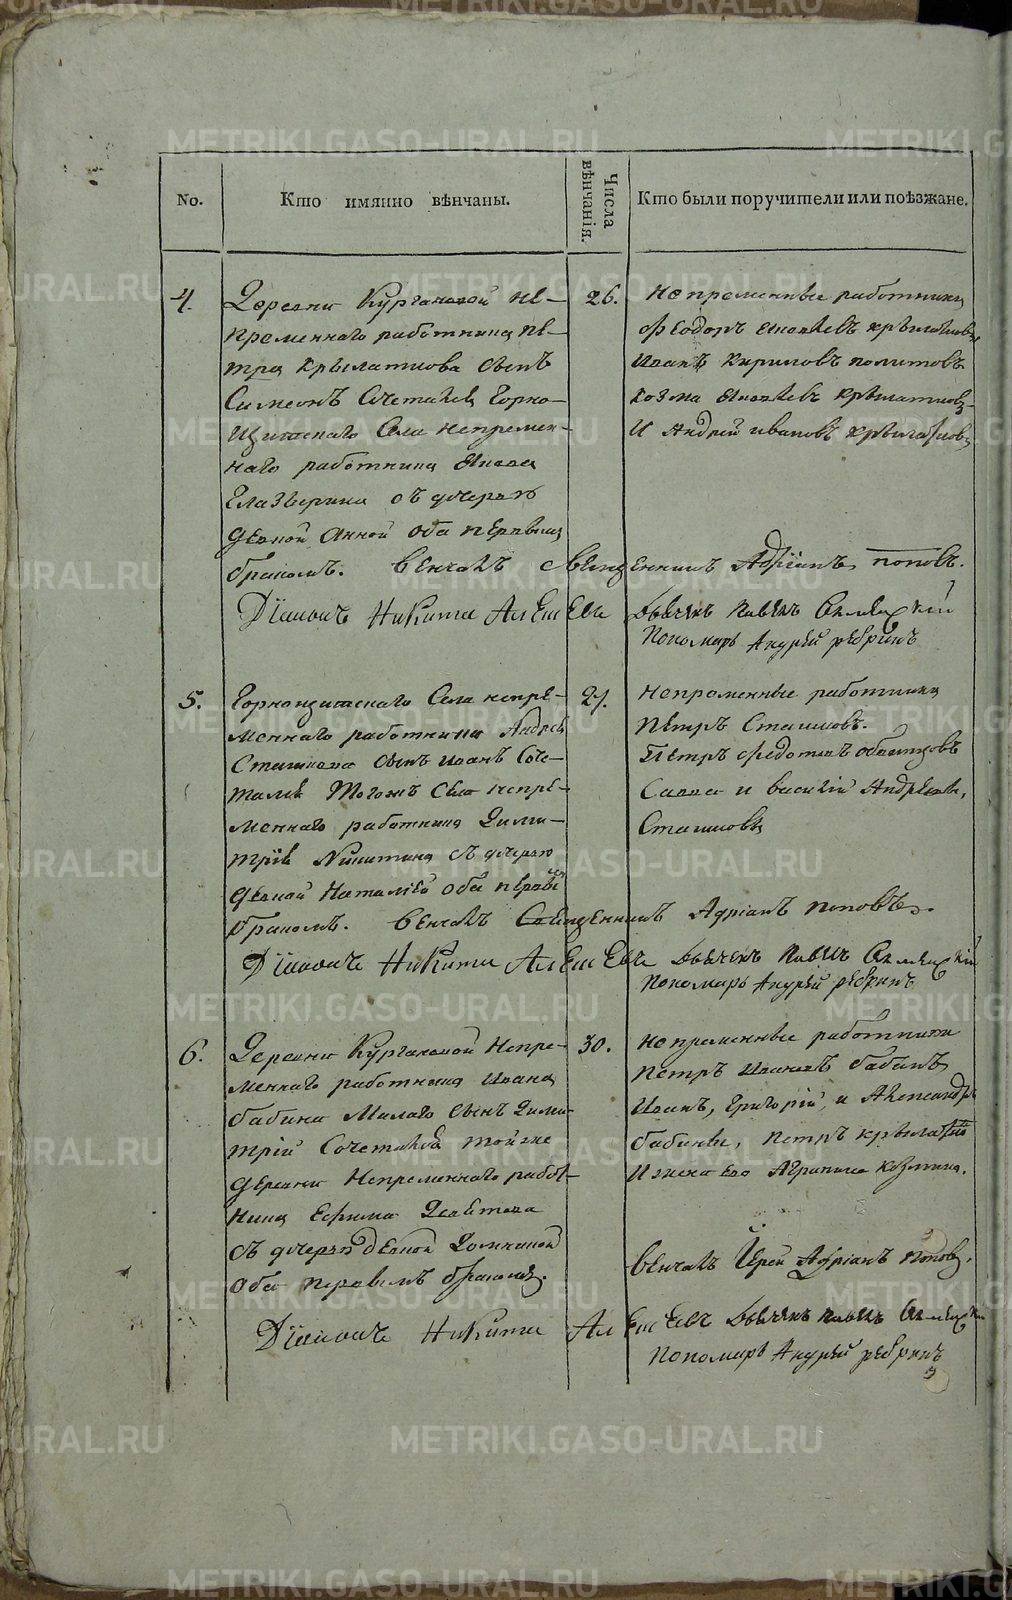 No.
Кто имянно вѣнчаны.
Числа вѣнчанія.
Кто были поручители или поѣзжане.
4.
Деревни Кургановой не-
пременнаго работника пе-
тра Крылаткова сынъ
Симеонъ Сочетался Горно-
Щитскаго Села непремен-
наго работника Якова
Глазырина съ дочерью
девкой Анной оба первымъ
бракомъ. венчалъ священникъ Адріанъ поповъ.
26.
Непременные работники
Феодоръ Яковлевъ крылатковъ
Иванъ Кириловъ политовъ
Козма Яковлевъ Крылатковъ
И Андрей ивановъ крылатковъ
Діаконъ Никита
Пономарь Андрей ребринъ
5.
Горнощитскаго Села непре-
меннаго работника Андрея
Сташкова сынъ иванъ Соче-
тался Тогожъ Села непре-
меннаго работника Дими-
трія Никитина съ дочерью
девкой Наталіей оба первы
бракомъ. венчалъ Священникъ Адріанъ поповъ.
27.
Непременные работники
Петръ Сташковъ.
Петръ федотовъ
Савва и василій Андреевы,
Сташковы
Діаконъ Никита
Пономарь Андрей ребринъ
6.
Деревни Кургановой Непре-
меннаго работника Ивана
бабина Малаго сынъ Дими-
трій Сочетался тойже
деревни Непременнаго работ-
ника Ефима
съ дочерью девкой Домникой
оба первымъ бракомъ.
30.
Непременные работники
петръ Ивановъ бабинъ
Иванъ, Григорій, и Александръ
бабины, петръ
И жена его Агрипина козмина.
венчалъ Іерей Адріанъ поповъ.
Діаконъ Никита
Пономарь Андрей ребринъ
METRIKI.GASO-URAL.RU